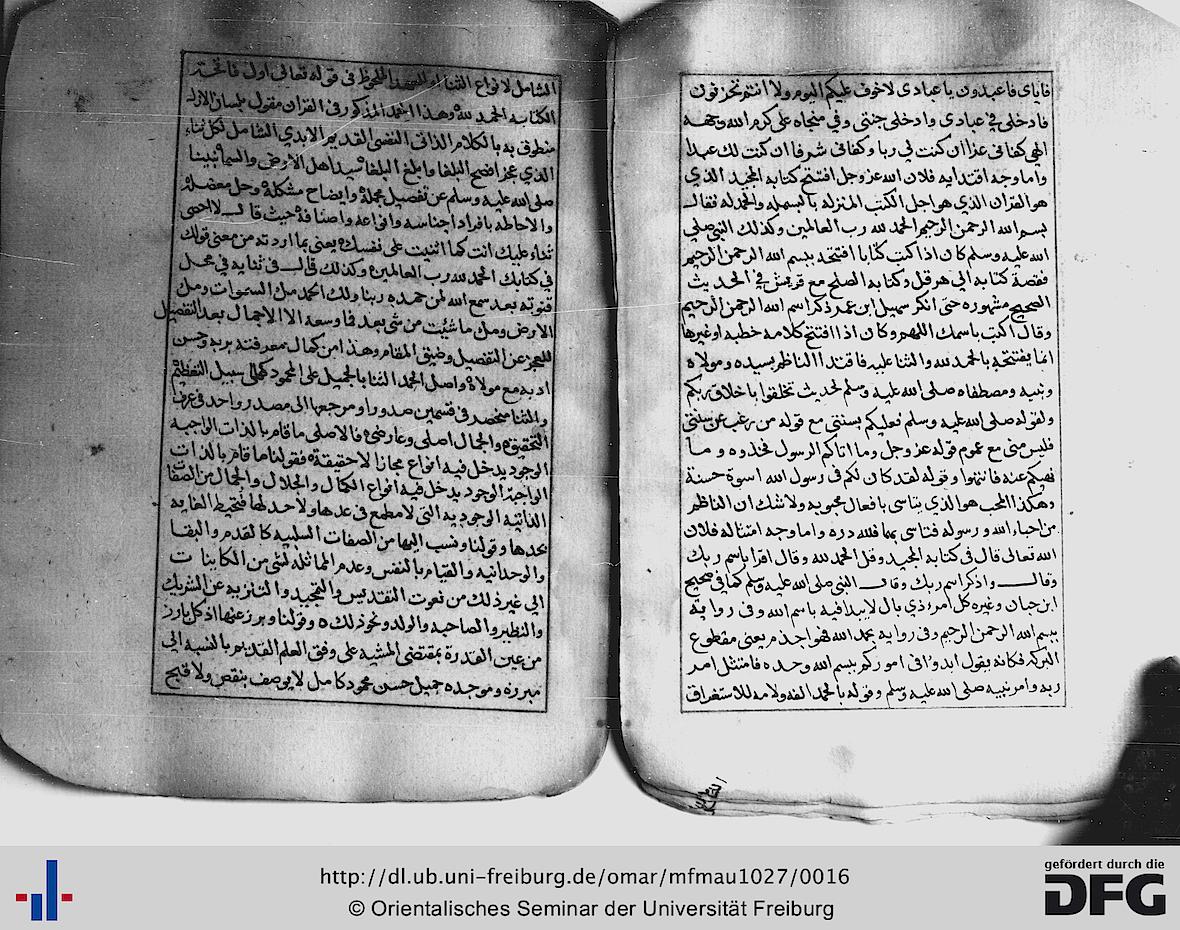 فاياي فاعبدون يا عبادي لا خوف عليكم اليوم ولا انتم تحزنون
فادخلي في عبادي وادخلي جنتي وفي منجاه علي كرم الله وجهه
الهي كفاني عزا ان كنت لي ربا وكفاني شرفا ان كنت لك عبدا
واما وجه اقتدايه فلان الله عز وجل افتتح كتابه المجيد الذي
هو القران الذي هو اجل الكتب المنزله بالبسمله والحمدله فقال
بسم الله الرحمن الرحيم الحمد لله رب العالمين وكذلك النبي صلي
الله عليه وسلم كان اذا كتب كتابا افتتحه ببسم الله الرحمن الرحيم
فقصة كتابه الي هرقل وكتابه الصلح مع قريش في الحديث
الصحيح مشهوره حتى انكر سهيل ابن عمر ذكر اسم الله الرحمن الرحيم
وقال اكتب باسمك اللهم وكان اذا افتتح كلامه خطبه او غيرها
انما يفتتحه بالحمد لله والثنا عليه فاقتدا الناظم بسيده ومولاه
ونبيه ومصطفاه صلى الله عليه وسلم لحديث تخلقوا باخلاق ربكم
ولقوله صلى الله عليه وسلم فعليكم بسنتي مع قوله من رغب عن سنتي
فليس مني مع عموم قوله عز وجل وما اتاكم الرسول فخذوه وما
نهيكم عنه فانتهوا وقوله لقد كان لكم في رسول الله اسوة حسنة
وهكذا المحب هو الذي يتاسى بافعال محبوبه ولا شك ان الناظم
من احباء الله ورسوله فتاسى بهما فلله دره واما وجه امتثاله فلان
الله تعالى قال في كتابه المجيد وقل الحمد لله وقال اقرا باسم ربك
وقال واذكر اسم ربك وقال النبي صلى الله عليه وسلم كما في صحيح
ابن حبان وغيره كل امر ذي بال لا يبدا فيه باسم الله وفي رواية
ببسم الله الرحمن الرحيم وفي رواية بحمد الله فهو اجذم يعني مقطوع
البركه فكانه يقول ابدوا في اموركم ببسم الله وحده فامتثل امر
ربه وامر نبيه صلى الله عليه وسلم وقوله بالحمد الفه ولامه للاستغراق
الشامل
الشامل لانواع الثنا الملحوظ في قوله تعالى اول فاتحة
الكتاب الحمد لله وهذا الحمد المذكور في القران مقول بلسان الازل
منطوق به بالكلام الذاتي النفسي القديم الابدي الشامل لكل ثناء
الذي عجز افصح البلغا وابلغ البلغا سيد اهل الارض والسما نبينا
صلى الله عليه وسلم عن تفصيل مجمله وايضاح مشكله وحل معضله
والاحاطه بافراد اجناسه وانواعه واصنافه حيث قال لا احصى
ثناء عليك انت كما اثنيت على نفسك يعني بما اردته من معنى قولك
في كتابك الحمد لله رب العالمين وكذلك قال في ثنايه في محل
قنوته بعد سمع الله لمن حمده ربنا ولك الحمد مل السموات ومل
الارض ومل ما شئت من شي بعد فما وسعه الا الاجمال بعد التفصيل
للعجز عن التفصيل وضيق المقام وهذا من كمال معرفته بربه وحسن
ادبه مع مولاه واصل الحمد الثنا بالجميل على المحمود على سبيل التعظيم
والثنا منحصر في قسمين صدورا ومرجعها الى مصدر واحد في عرف
التحقيق والجمال اصلى وعارضى فالاصلى ما قام بالذات الواجبه
الوجود يدخل فيه انواع مجازا لا حقيقة فقولنا ما قام بالذات
الواجبة الوجود يدخل فيه انواع الكمال والجلال والجمال من الصفات
الذاتيه الوجوديه التي لا مطمع في عدها ولا حد لها فتحيط الغايه
بحدها وقولنا ونسب اليها من الصفات السلبيه كالقدم والبقا
والوحدانيه والقيام بالنفس وعدم المماثله لشي من الكاينات
الى غير ذلك من نعوت التقديس والتمجيد والتنزيه عن الشريك
والنظير والصاحبه والولد ونحو ذلك وقولنا وبرز عنها اذ كل بارز
من عين القدرة بمقتضى المشيه على وفق العلم القديم بالنسبه الى
مبرزه وموجده جميل حسن محمود كامل لا يوصف بنقص ولا قبح
http://dl.ub.uni-freiburg.de/omar/mfmau1027/0016
© Orientalisches Seminar der Universität Freiburg
gefördert durch die
DFG